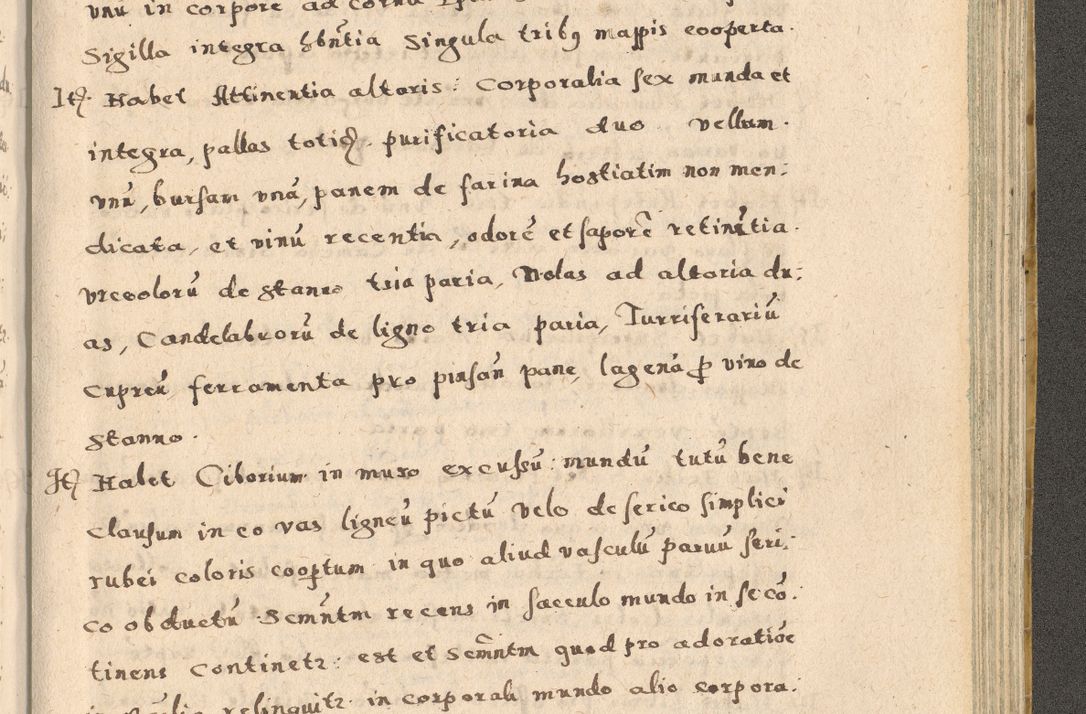 unu in corpore ad cornu
Sigilla integra hbn̄tia Singula tribꝯ mappis cooperta.
Itꝫ. Habet Attinentia altaris: Corporalia sex munda et
integra, pallas totidꝫ. purificatoria duo vellum.
vnū, bursam vnā, panem de farina hostiatim non men:
dicata, et vinū recentia, odorē et saporē retinētia.
vrceolorū de stanno tria paria, Nolas ad altaria du:
as, Candelabrorū de ligno tria paria, Turriferariū
cupreū ferramenta pro pinsan̄ pane, lagenā ꝑ vino de
stanno.
Itꝫ Habet Ciborium in muro excussū: mundū tutū bene
clausum in eo vas ligneū pictū velo de serico simplici
rubei coloris cooꝑtum in quo aliud vasculū paruū seri:
co obductū Scmn̄tm recens in sacculo mundo in se cō:
tinens Continetꝛ: est et Scmn̄tm quod pro adoratiōe
relinquitꝛ in corporali mundo alio corpora: